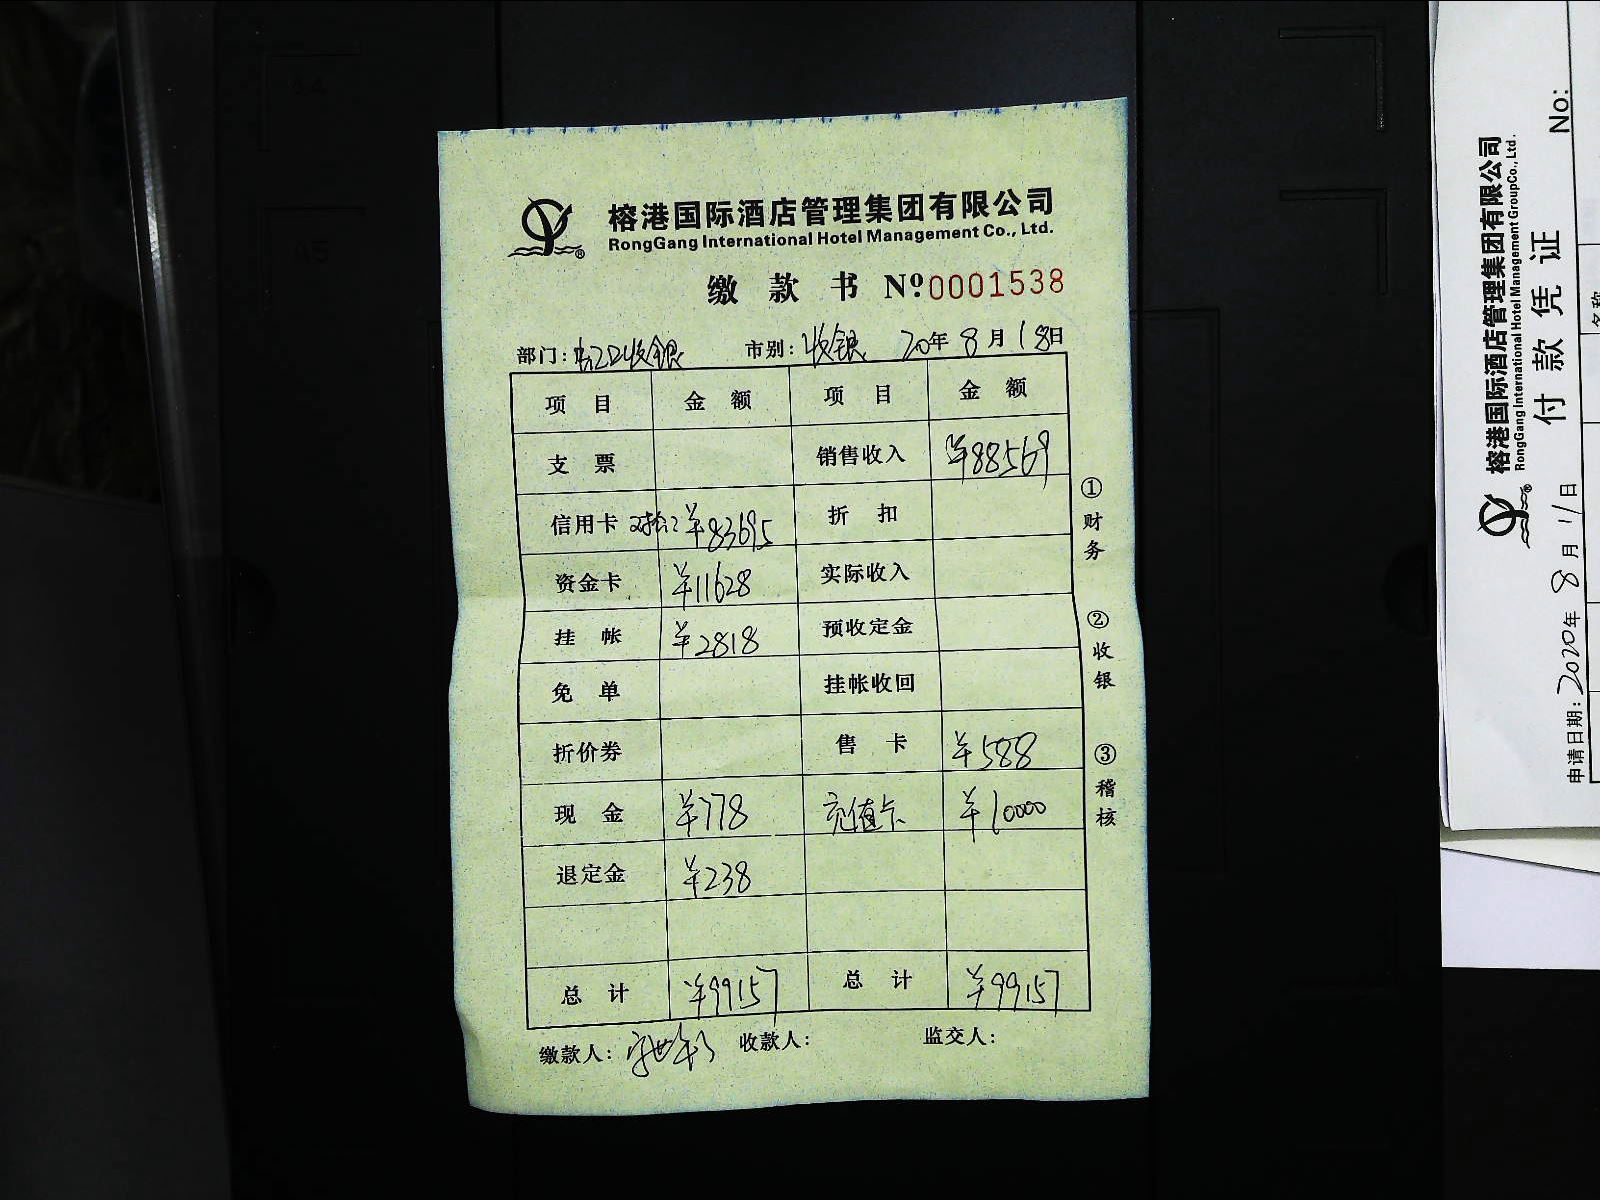 榕港国际酒店管理集团有限公司
RongGang International Hotel Management Co., Ltd.
缴款书 Nº 0001538
部门: 收银 市别: 收银 20年 8月 18日
项目 金额 项目 金额
支票 销售收入 ¥88569
信用卡 ¥83695 折扣
资金卡 ¥11628 实际收入
挂帐 ¥2818 预收定金
免单 挂帐收回
折价券 售卡 ¥588
现金 ¥778 充值卡 ¥10000
退定金 ¥238
总计 ¥99157 总计 ¥99157
缴款人: 收款人: 监交人:
①财务 ②收银 ③稽核
榕港国际酒店管理集团有限公司
RongGang International Hotel Management GroupCo., Ltd.
付款凭证 No:
申请日期: 2020年 8月 1/日
名称